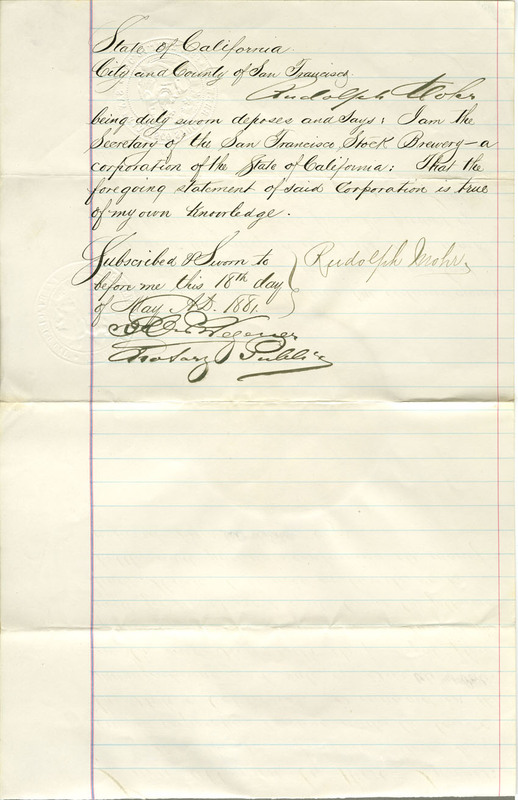 State of California
City and County of San Francisco.
Rudolph Mohr
being duly sworn deposes and says; I am the
Secretary of the San Francisco Stock Brewery – a
corporation of the State of California: That the
foregoing statement of said Corporation is true
of my own Knowledge.
Subscribed & Sworn to
before me this 18th day
of May A.D. 1881.
Rudolph Mohr
Wegener
Notary Public